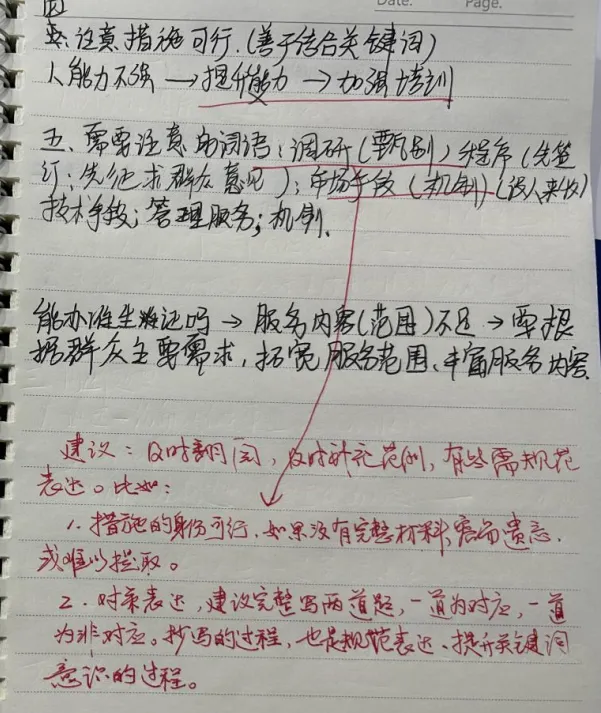 Date.
Page.
四
要注意措施可行.(善于结合关键词)
人能力不强 → 提升能力 → 加强培训
五、需要注意的词语:调研(甄别)程序(先签
订;先征求群众意见);市场手段(机制)(没人来收)
技术手段;管理服务;机制.
能办准生证吗 → 服务内容(范围)不足 → 要根
据群众主要需求,拓宽服务范围、丰富服务内容.
建议:及时翻阅,及时补充范例,有些需规范
表达。比如:
1.措施的身份可行,如果没有完整材料,容易遗忘,
或难以提取。
2.对策表达,建议完整写两道题,一道为对应,一道
为非对应。抄写的过程,也是规范表达、提升关键词
意识的过程。